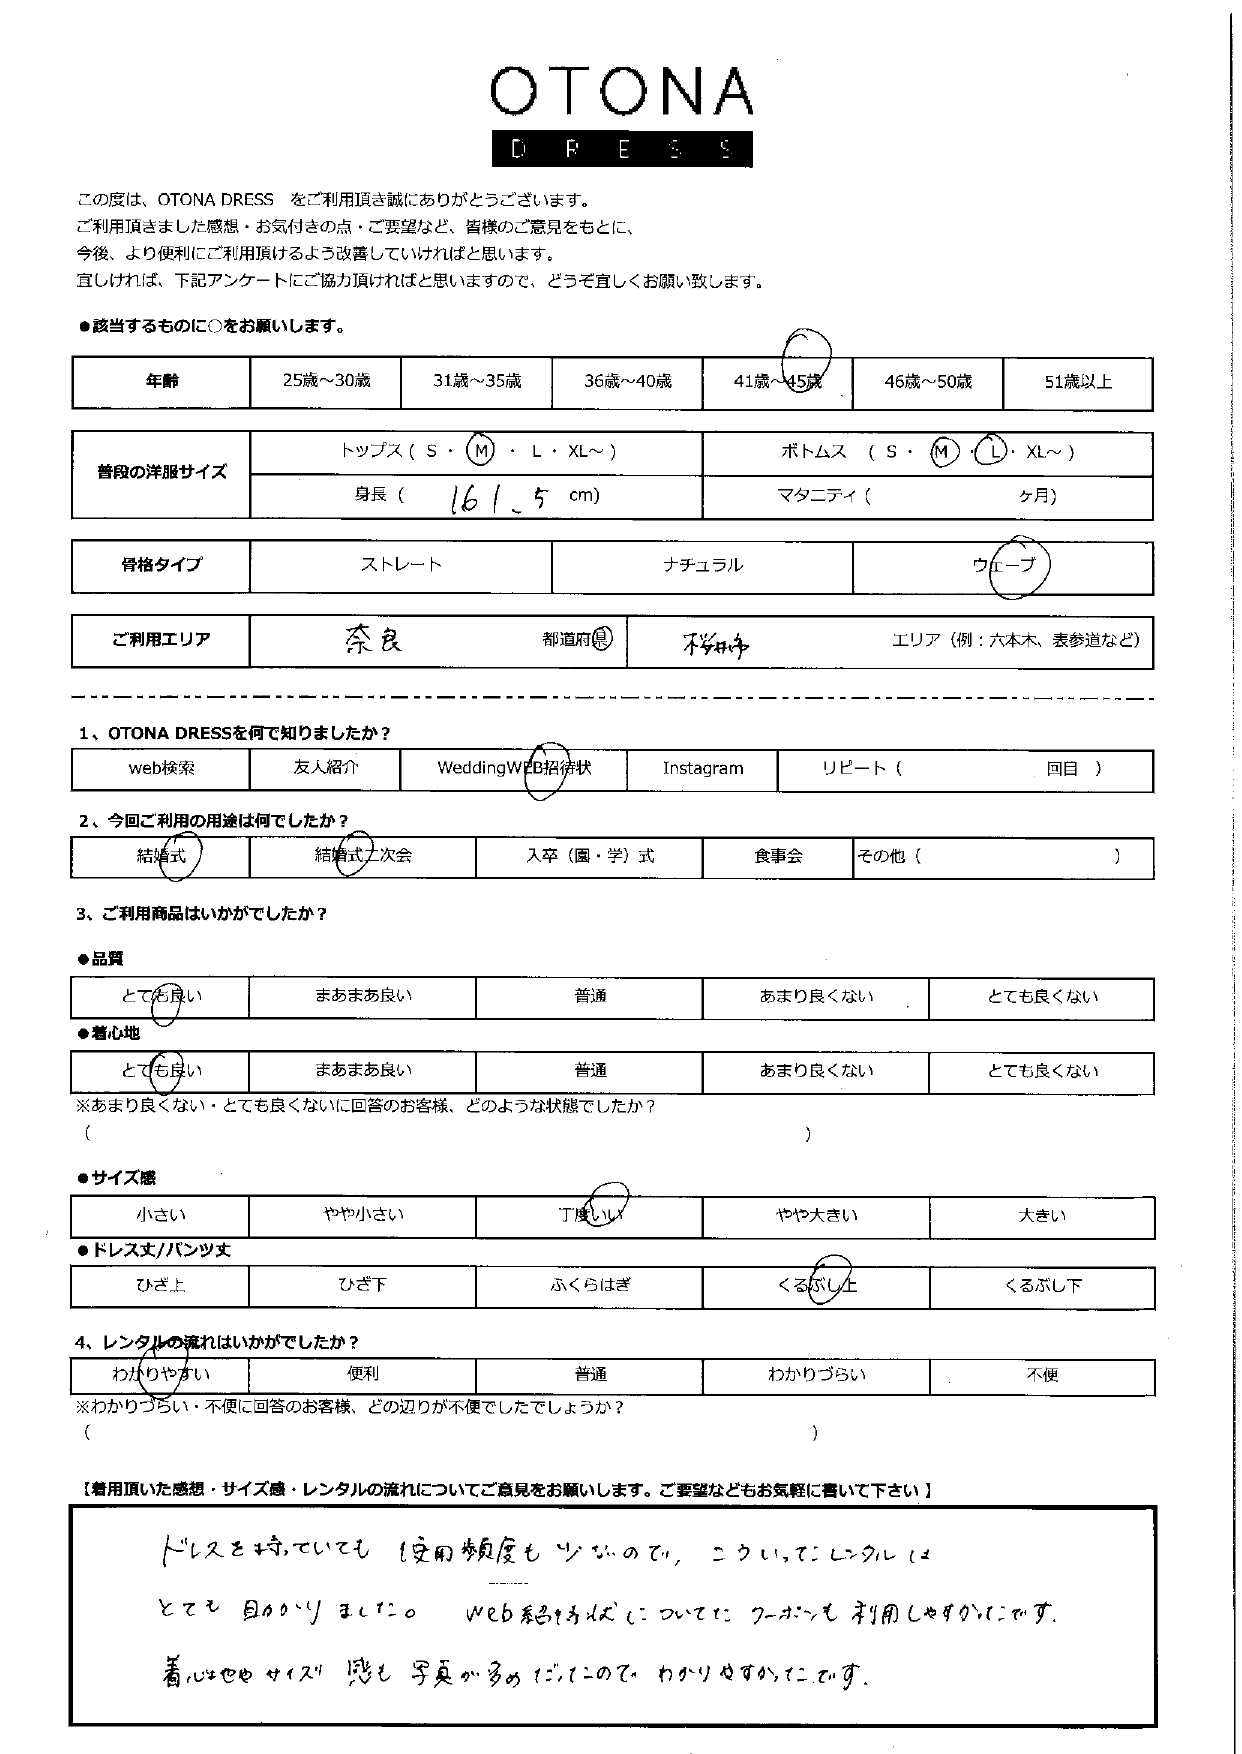 OTONA
DRESS
この度は、OTONA DRESS　をご利用頂き誠にありがとうございます。
ご利用頂きました感想・お気付きの点・ご要望など、皆様のご意見をもとに、
今後、より便利にご利用頂けるよう改善していければと思います。
宜しければ、下記アンケートにご協力頂ければと思いますので、どうぞ宜しくお願い致します。
●該当するものに○をお願いします。
年齢 25歳～30歳 31歳～35歳 36歳～40歳 41歳～45歳 46歳～50歳 51歳以上
普段の洋服サイズ
トップス ( S ・ M ・ L ・ XL～ ) ボトムス ( S ・ M ・ L ・ XL～ )
身長 ( 161.5 cm) マタニティ ( ヶ月)
骨格タイプ ストレート ナチュラル ウェーブ
ご利用エリア 奈良 都道府県 桜井市 エリア（例：六本木、表参道など）
1、OTONA DRESSを何で知りましたか？
web検索 友人紹介 WeddingWEB招待状 Instagram リピート ( 回目 )
2、今回ご利用の用途は何でしたか？
結婚式 結婚式二次会 入卒（園・学）式 食事会 その他 ( )
3、ご利用商品はいかがでしたか？
●品質
とても良い まあまあ良い 普通 あまり良くない とても良くない
●着心地
とても良い まあまあ良い 普通 あまり良くない とても良くない
※あまり良くない・とても良くないに回答のお客様、どのような状態でしたか？
( )
●サイズ感
小さい やや小さい 丁度いい やや大きい 大きい
●ドレス丈/パンツ丈
ひざ上 ひざ下 ふくらはぎ くるぶし上 くるぶし下
4、レンタルの流れはいかがでしたか？
わかりやすい 便利 普通 わかりづらい 不便
※わかりづらい・不便に回答のお客様、どの辺りが不便でしたでしょうか？
( )
【着用頂いた感想・サイズ感・レンタルの流れについてご意見をお願いします。ご要望などもお気軽に書いて下さい】
ドレスを持っていても 使用頻度も少ないので, こういったレンタルは
とても 助かりました。 web招待状についてた クーポンも 利用しやすかったです.
着心地や サイズ感も 写真が多めだったので わかりやすかったです.